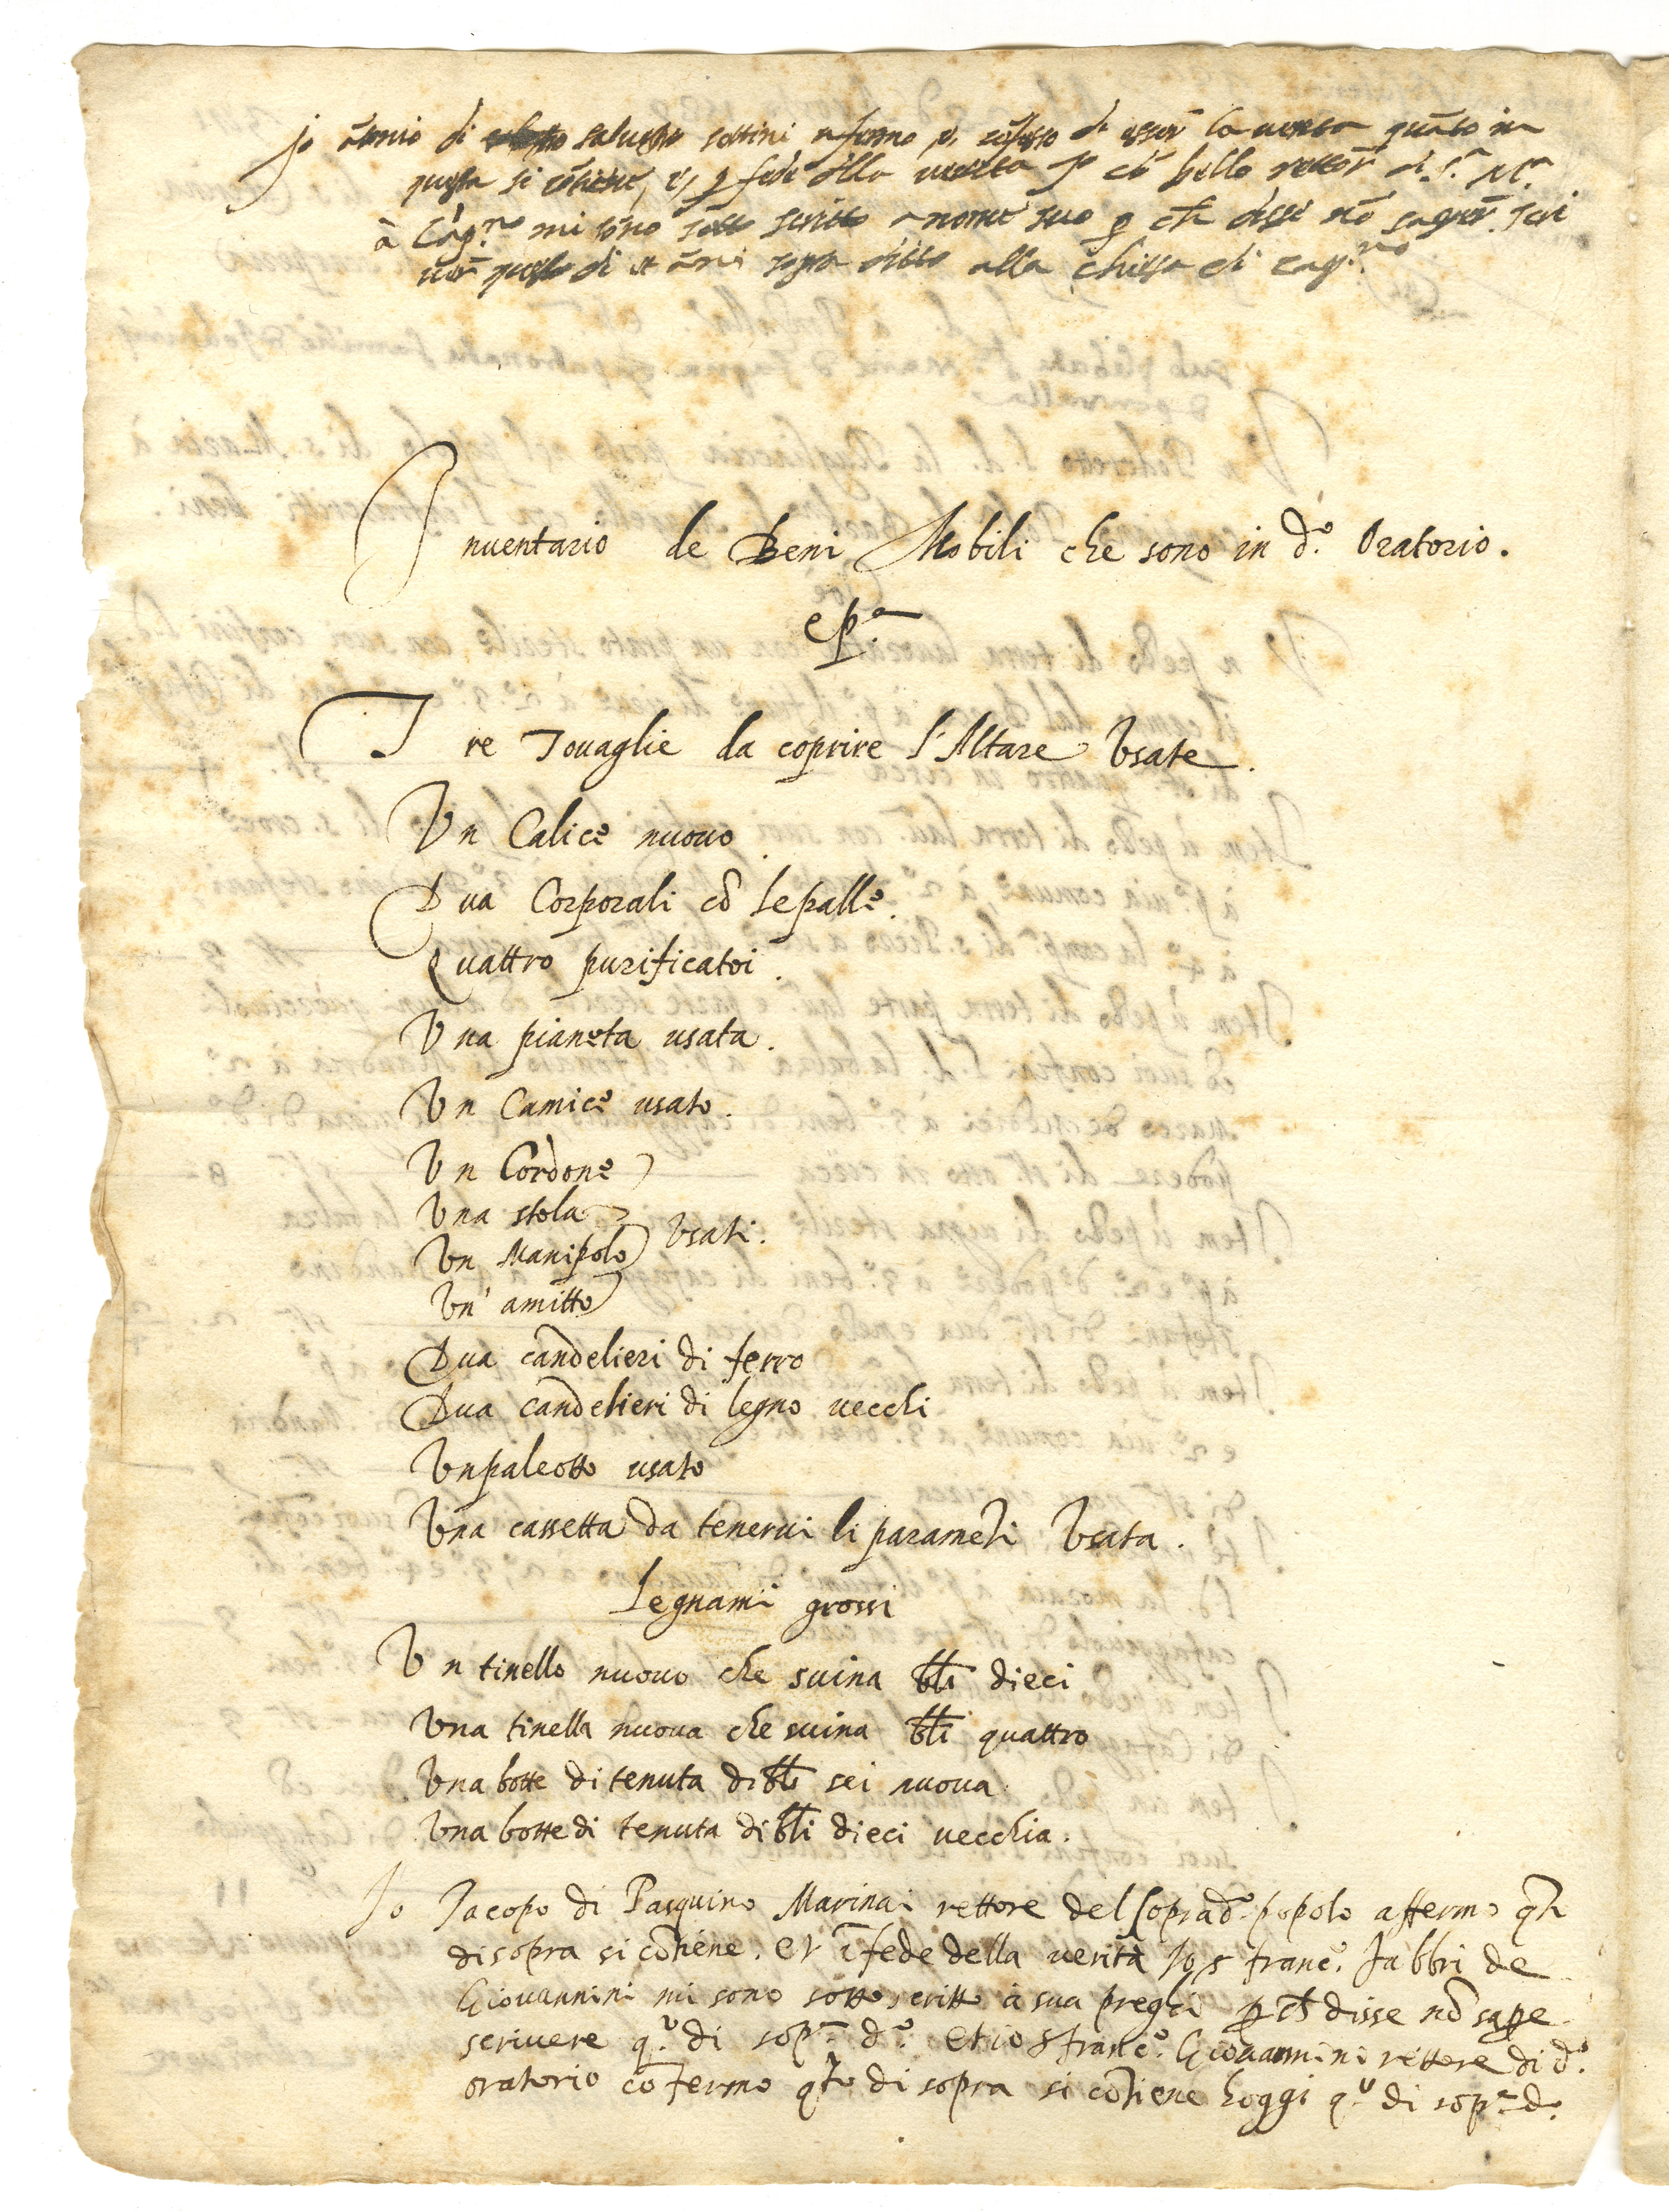 Jo di salvestro sottini affermo et confesso di esser la verita quãto in
questa si cõtiene, et p fede dlla verita Jo rettor di S.ta M.a
à mi sono sotto scritto a nome suo p ch disse nõ saper scri
ver questo di sopra ditto alla chiesa di
Inuentario de Beni Mobili che sono in d.º Oratorio.
e p.ª
Tre Touaglie da coprire l'Altare Vsate.
Vn Calice nuouo.
Dua Corporali cõ le palle.
Quattro purificatoi.
Vna pianeta usata.
Vn Camice usato.
Vn Cordone
Vna stola
Vsati.
Vn Manipolo
Vn' amitto
Dua candelieri di ferro
Dua candelieri di legno uecchi
Vn paleotto usato
Vna cassetta da tenerui li paramẽti Vsata.
Legnami grossi
Vn tinello nuouo che suina bli dieci
Vna tinella nuoua che suina bli quattro
Vna botte di tenuta di bli sei nuoua
Vna botte di tenuta di bli dieci uecchia.
Io Jacopo di Pasquino Marinai rettore del soprad.º popolo affermo qto
di sopra si cõtiene. et ĩ fede della verità Io s franc.º fabbri de
Giouannini mi sono sotto scritto à sua preghi p ch disse nõ sape
scriuere q.º di sop.ª d.º et io s franc.º Giouannini rettore di d.º
oratorio cõfermo qto di sopra si cõtiene hoggi q.º di sop.ª d.º